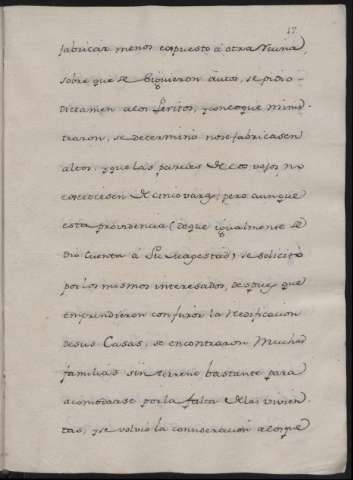 17
fabricar menos expuesto á otra Ruina,
sobre que se siguieron autos, se pidió
Dictamen a los Peritos, y con lo que minis-
traron, se determinó no se fabricasen
altos, y que las paredes de los vajos, no
excediesen de cinco varas; pero aunque
esta providencia (de que igualmente se
dio cuenta á Su Magestad) se solicitó
por los mismos interesados, despues que
emprendieron con furor la reedificacion
de sus Casas, se encontraron Muchas
familias sin terreno bastante para
acomodarse por la falta de las vivien-
tas, y se volvió la consideracion a lo que